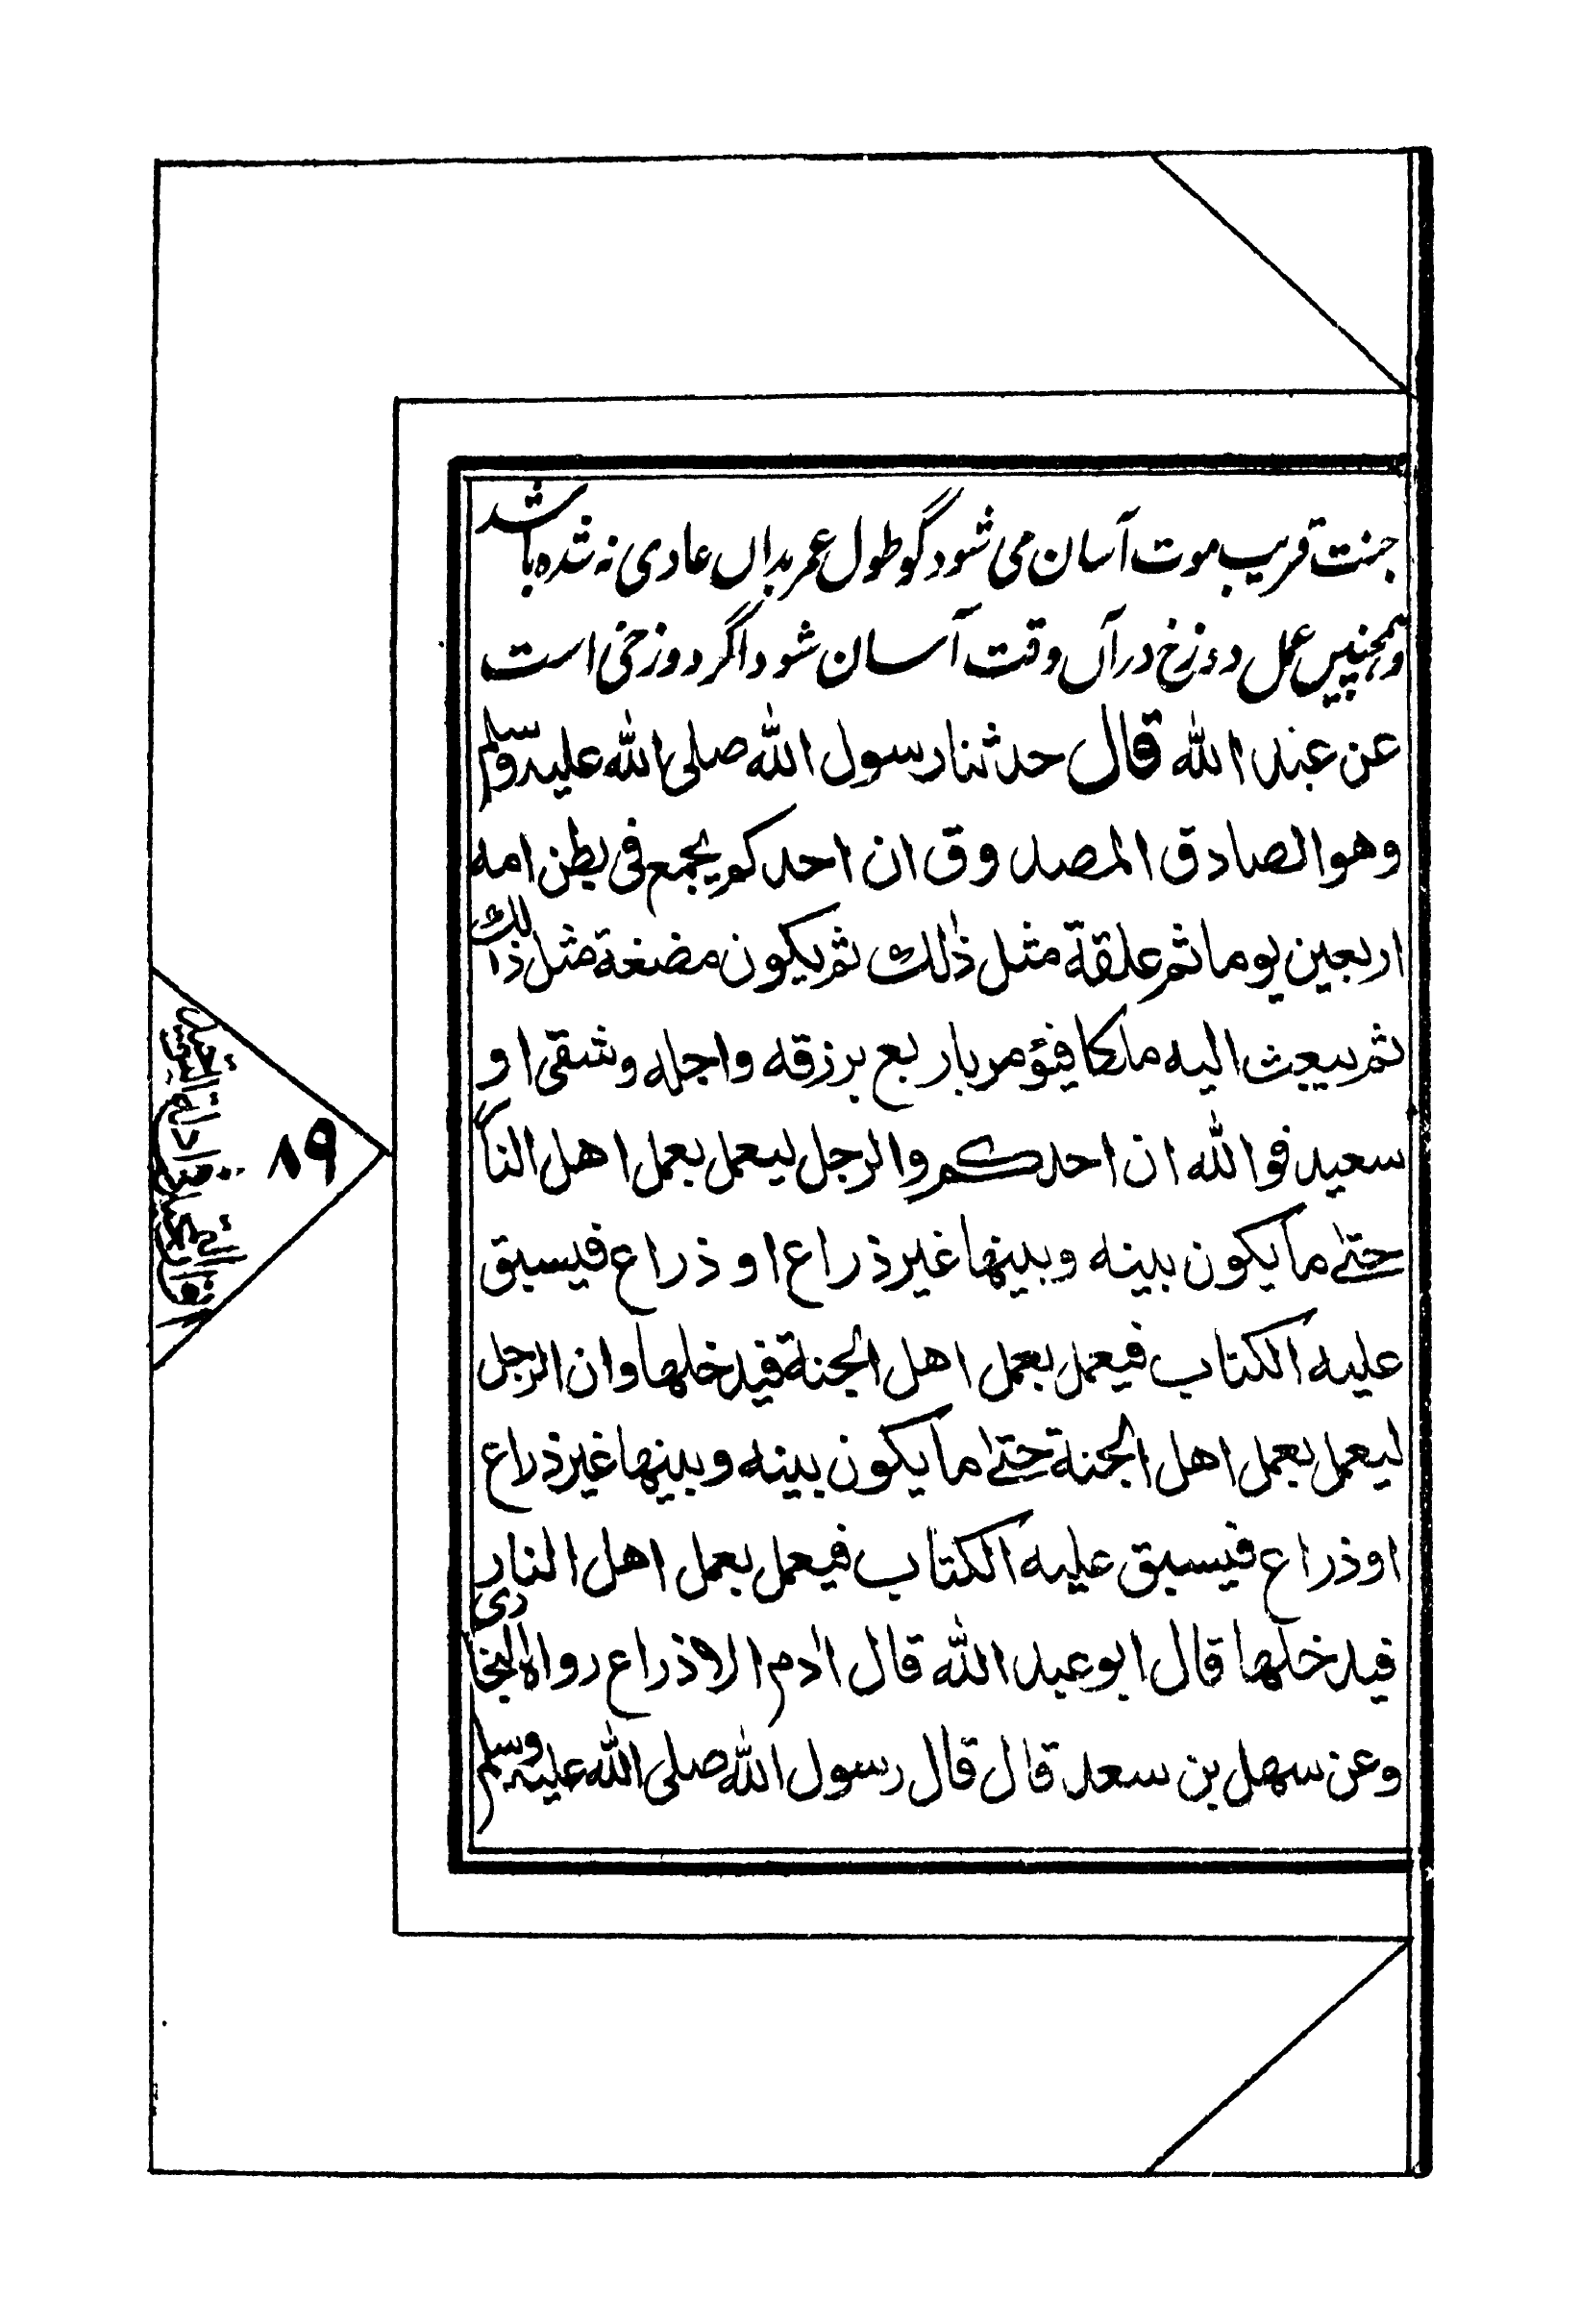 جنت قریب موت آسان می شود گو طول عمر بداں عادی نہ شدہ باشد
وہمچنیں عمل دوزخ در آں وقت آسان شود اگر دوزخی است
عن عبد الله قال حدثنا رسول الله صلى الله عليه وسلم
وهو الصادق المصدوق ان احدكم يجمع فى بطن امه
اربعين يوما ثم علقة مثل ذٰلك ثم يكون مضغة مثل ذالك
ثم يبعث اليه ملكا فيؤمر باربع برزقه واجله وشقى او
سعيد فوالله ان احدكم والرجل ليعمل بعمل اهل النار
حتىٰ ما يكون بينه وبينها غير ذراع او ذراع فيسبق
عليه الكتاب فيعمل بعمل اهل الجنة فيدخلها وان الرجل
ليعمل بعمل اهل الجنة حتىٰ ما يكون بينه وبينها غير ذراع
او ذراع فيسبق عليه الكتاب فيعمل بعمل اهل النار
فيدخلها قال ابو عبد الله قال اٰدم الا ذراع رواه البخارى
وعن سهل بن سعد قال قال رسول الله صلى الله عليه وسلم
۸۹